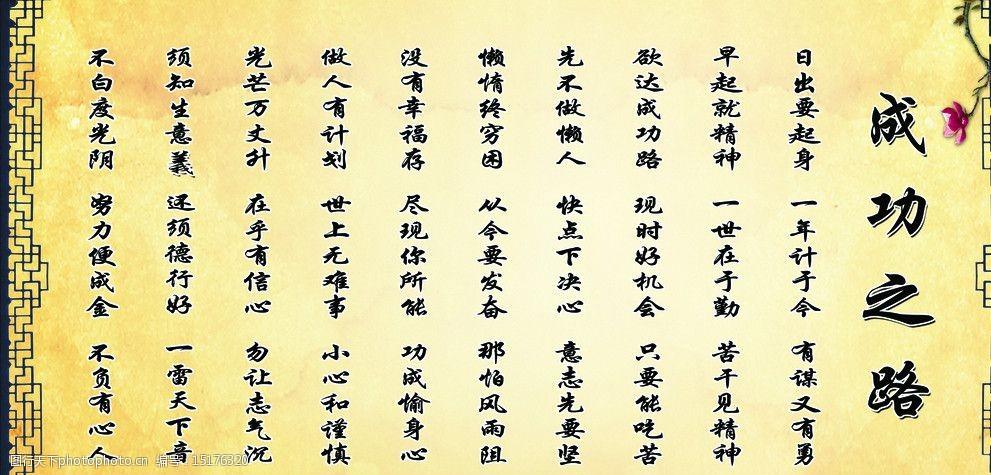 成功之路
日出要起身 一年计于今 有谋又有勇
早起就精神 一世在于勤 苦干见精神
欲达成功路 现时好机会 只要能吃苦
先不做懒人 快点下决心 意志先要坚
懒惰终穷困 从今要发奋 那怕风雨阻
没有幸福存 尽现你所能 功成愉身心
做人有计划 世上无难事 小心和谨慎
光芒万丈升 在乎有信心 勿让志气沉
须知生意義 还须德行好 一雷天下音
不白度光阴 努力便成金 不负有心人
图行天下photophoto.cn 编号：15176320